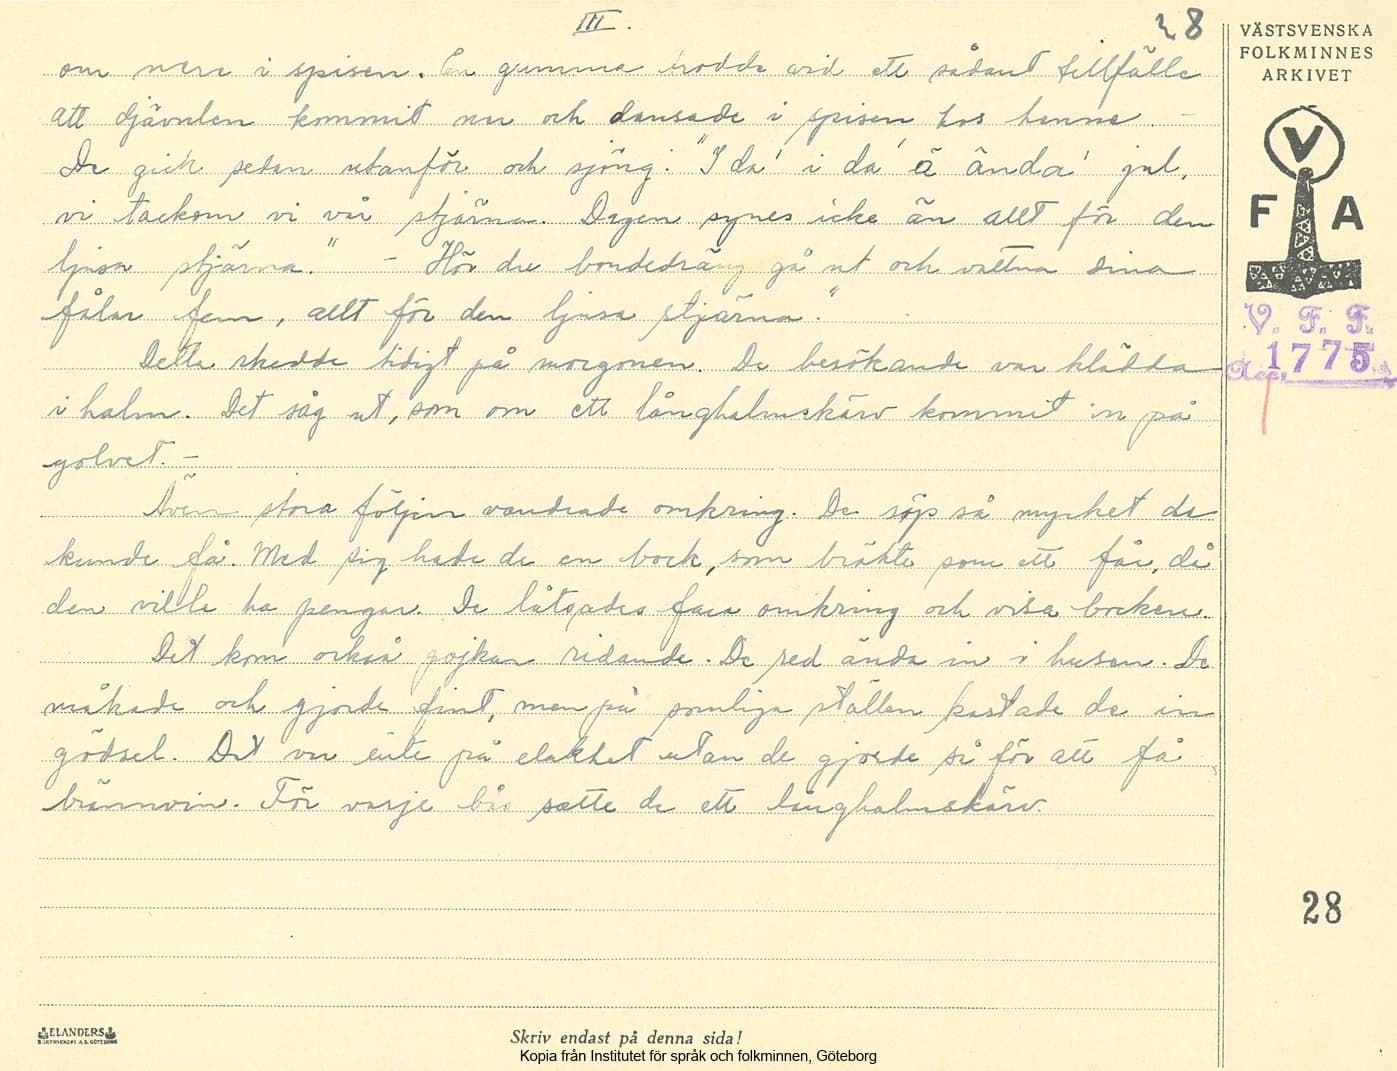 III.
28
om nere i spisen. En gumma trodde vid ett sådant tillfälle
att djävulen kommit ner och dansade i spisen hos henne. -
De gick sedan utanför och sjöng: "I da' i da' ä ända' jul,
vi tackom vi vår stjärna. Dagen synes icke än allt för den
ljusa stjärna." - Hör du bondedräng gå ut och vattna dina
fålar fem, allt för den ljusa stjärna."
Detta skedde tidigt på morgonen. De besökande var klädda
i halm. Det såg ut, som om ett långhalmskärv kommit in på
golvet. -
Även stora följen vandrade omkring. De söp så mycket de
kunde få. Med sig hade de en bock, som bräkte som ett får, då
den ville ha pengar. De låtsades fara omkring och visa bocken.
Det kom också pojkar ridande. De red ända in i husen. De
måkade och gjorde fint, men på somliga ställen kastade de in
gödsel. Det var inte på elakhet utan de gjorde så för att få
brännvin. För varje bås satte de ett långhalmskärv.
VÄSTSVENSKA
FOLKMINNES
ARKIVET
V
F A
V. F. F.
Acc. 1775
28
ELANDERS
BOKTRYCKERI A.B. GÖTEBORG
Skriv endast på denna sida!
Kopia från Institutet för språk och folkminnen, Göteborg